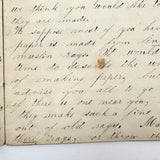 we think you would like t
they are made.
I suppose most of you have
paper is made from lin
muslin rags. It would
time to describe the w
of making paper, but
advise you all to go
if there is one near you,
they make such a fine
out of old rags. Ma
these rags, or throw th